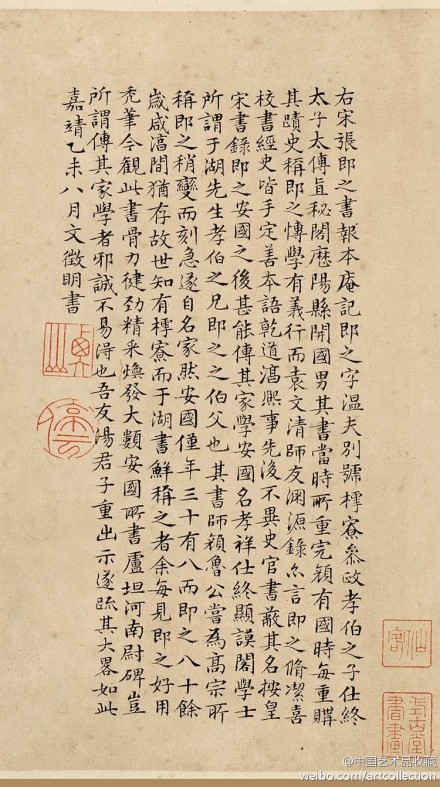 右宋張即之書報本庵記即之字溫夫別號樗寮參政孝伯之子仕終
太子太傅直秘閣歷陽縣開國男其書當時所重完顏有國時每重購
其蹟史稱即之博學有義行而袁文清師友淵源錄亦言即之脩潔喜
校書經史皆手定善本語乾道淳熙事先後不異史官書蔽其名按皇
宋書錄即之安國之後甚能傳其家學安國名孝祥仕終顯謨閣學士
所謂于湖先生孝伯之兄即之之伯父也其書師顏魯公嘗為高宗所
稱即之稍變而刻急遂自名家然安國僅年三十有八而即之八十餘
歲咸淳間猶存故世知有樗寮而于湖書鮮稱之者余每見即之好用
禿筆今觀此書骨力健勁精采煥發大類安國所書盧坦河南尉碑豈
所謂傳其家學者邪誠不易得也吾友湯君子重出示遂疏其大略如此
嘉靖乙未八月文徵明書
@中国艺术品收藏
weibo.com/artcollection